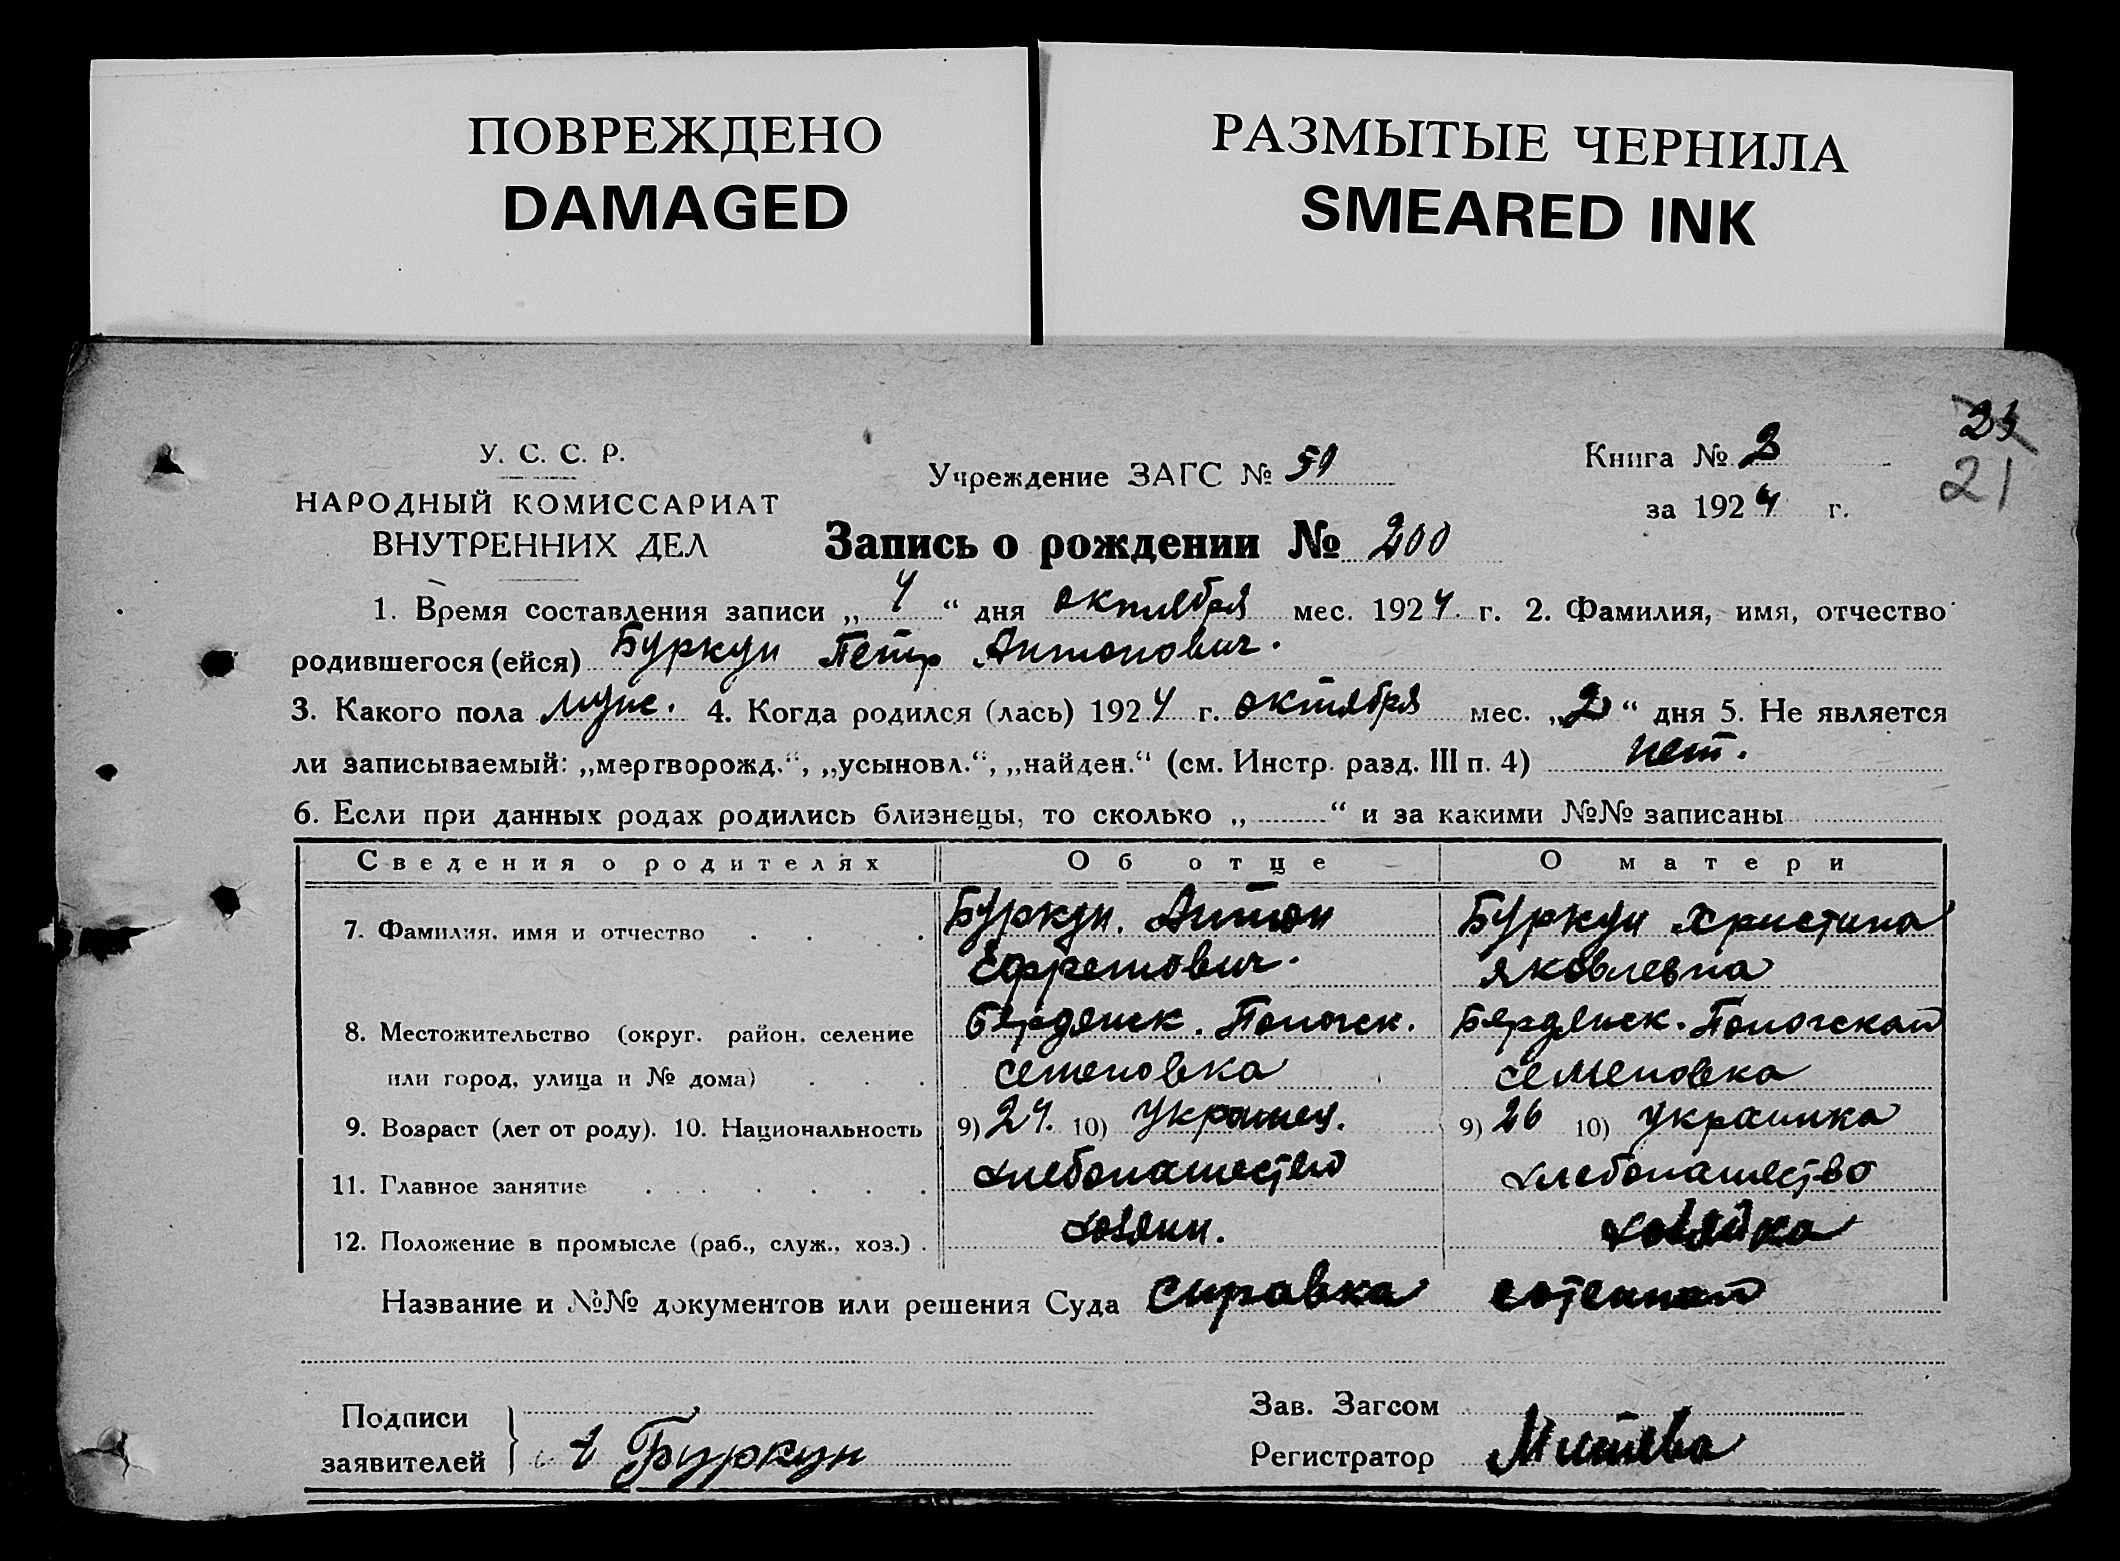 ПОВРЕЖДЕНО
DAMAGED
РАЗМЫТЫЕ ЧЕРНИЛА
SMEARED INK
23
21
У. С. С. Р.
НАРОДНЫЙ КОМИССАРИАТ
ВНУТРЕННИХ ДЕЛ
Учреждение ЗАГС №
Книга № 3
за 1924 г.
Запись о рождении № 200
1. Время составления записи „ 4 “ дня октября мес. 1924 г. 2. Фамилия, имя, отчество
родившегося (ейся) Буркун Петр Антонович.
3. Какого пола муж. 4. Когда родился (лась) 1924 г. октября мес. „2“ дня 5. Не является
ли записываемый: „мертворожд.“, „усыновл.“, „найден.“ (см. Инстр. разд. III п. 4) нет.
6. Если при данных родах родились близнецы, то сколько „ “ и за какими №№ записаны
Сведения о родителях Об отце О матери
7. Фамилия, имя и отчество Буркун. Антон Буркун Христина
Ефремович. Яковлевна
8. Местожительство (округ. район, селение Бердянск. Пологск. Бердянск. Пологской
или город, улица и № дома) Семеновка Семеновка
9. Возраст (лет от роду). 10. Национальность 9) 24. 10) Украинец. 9) 26 10) Украинка
11. Главное занятие хлебопашество хлебопашество
12. Положение в промысле (раб., служ., хоз.) хозяин. хозяйка
Название и №№ документов или решения Суда Справка сотенной
Подписи
заявителей А Буркун
Зав. Загсом
Регистратор